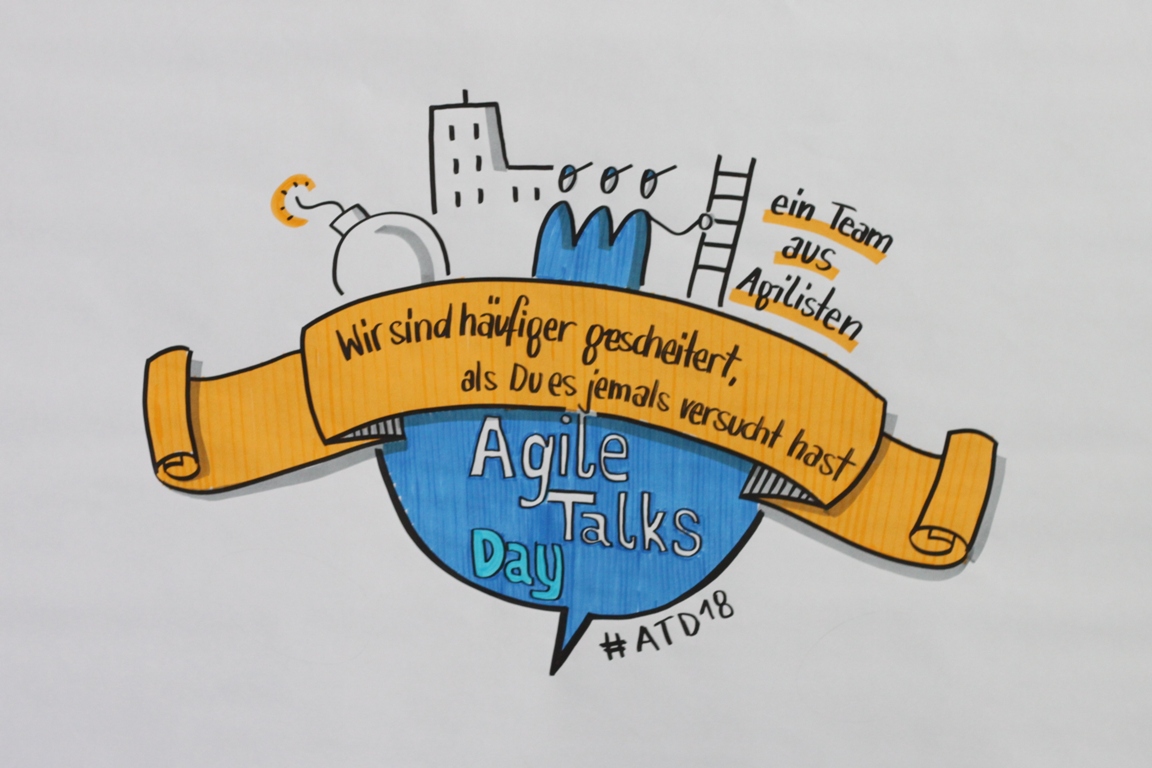 ein Team
aus
Agilisten
Wir sind häufiger gescheitert,
als Du es jemals versucht hast
Agile
Talks
Day
#ATD18